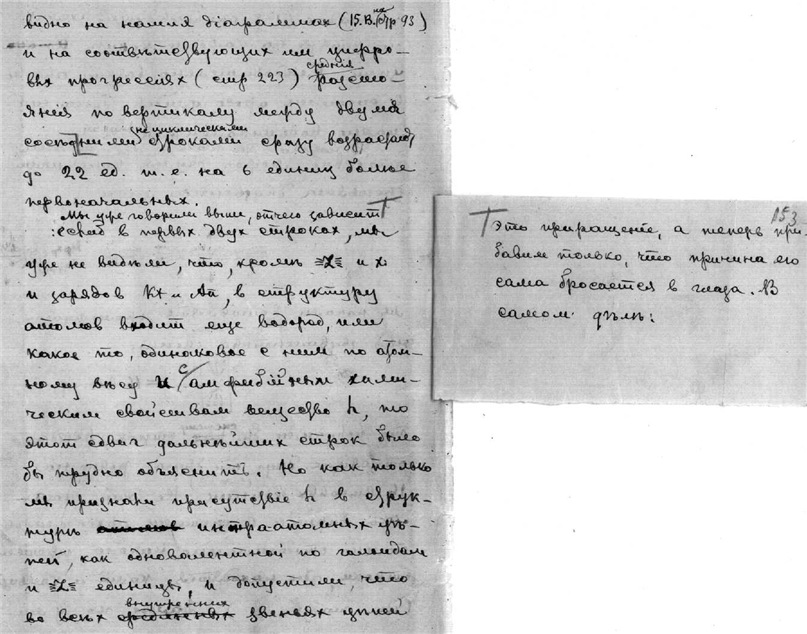 видно на нашия діаграммах (15.В. на стр 93)
и на соотвѣтствующих им цифро-
вых прогрессіях (стр 223) средния разсто-
янія по вертикалу между двумя
сосѣдними нециклическими строками сразу возрастают
до 22 ед. т. е. на 6 единиц болье
первоначальных.
Мы уже говорили выше, отчего зависит Т
в первых двух строках, мы
уже не видѣли, что, кромѣ Z и
и зарядов Кт и Ап, в структуру
атомов входит еще водород, или
какое то, одинаковое с ним по атом-
ному вѣсу и с амфибійными хими-
ческим свойствам вещество h, то
этот сдвиг дальнѣйших строк было
бы трудно объяснить. Но как только
мы признали присутствіе h в струк-
турѣ атомов интра-атомных цѣ-
пей, как одновалентной по галоидам
и Z единицы, и допустили, что
во всѣх внутренних звеньях цѣпей
153
Т Это приращеніе, а теперь при-
бавим только, что причина его
сама бросается в глаза. В
самом дѣлѣ: